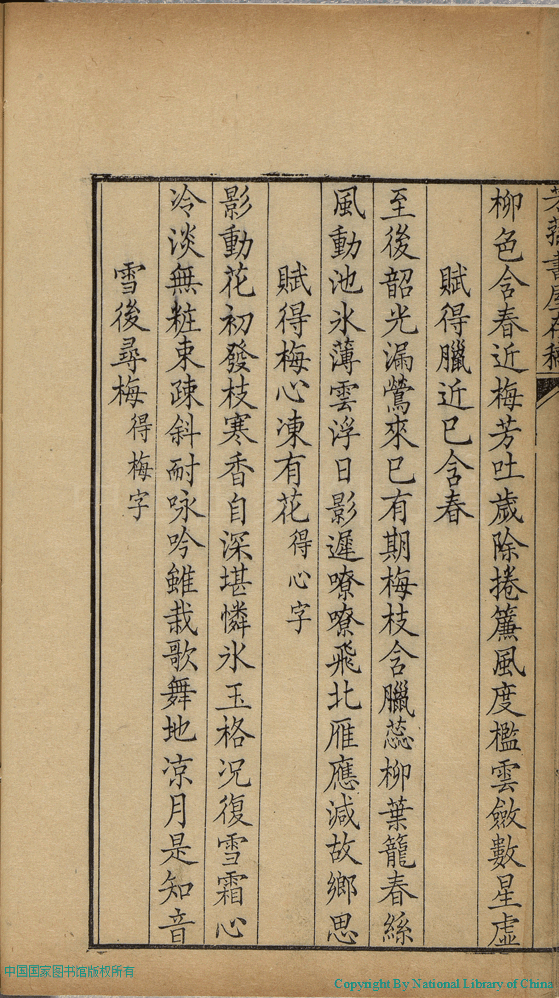 柳色含春近梅芳吐歲除捲簾風度檻雲斂數星虛
賦得臘近已含春
至後韶光漏鶯來已有期梅枝含臘蕊柳葉籠春絲
風動池氷薄雲浮日影遲嘹嘹飛北雁應減故鄉思
賦得梅心凍有花得心字
影動花初發枝寒香自深堪憐氷玉格况復雪霜心
冷淡無粧束疎斜耐咏吟雖栽歌舞地凉月是知音
雪後尋梅得梅字
中国国家图书馆版权所有
Copyright By National Library of China